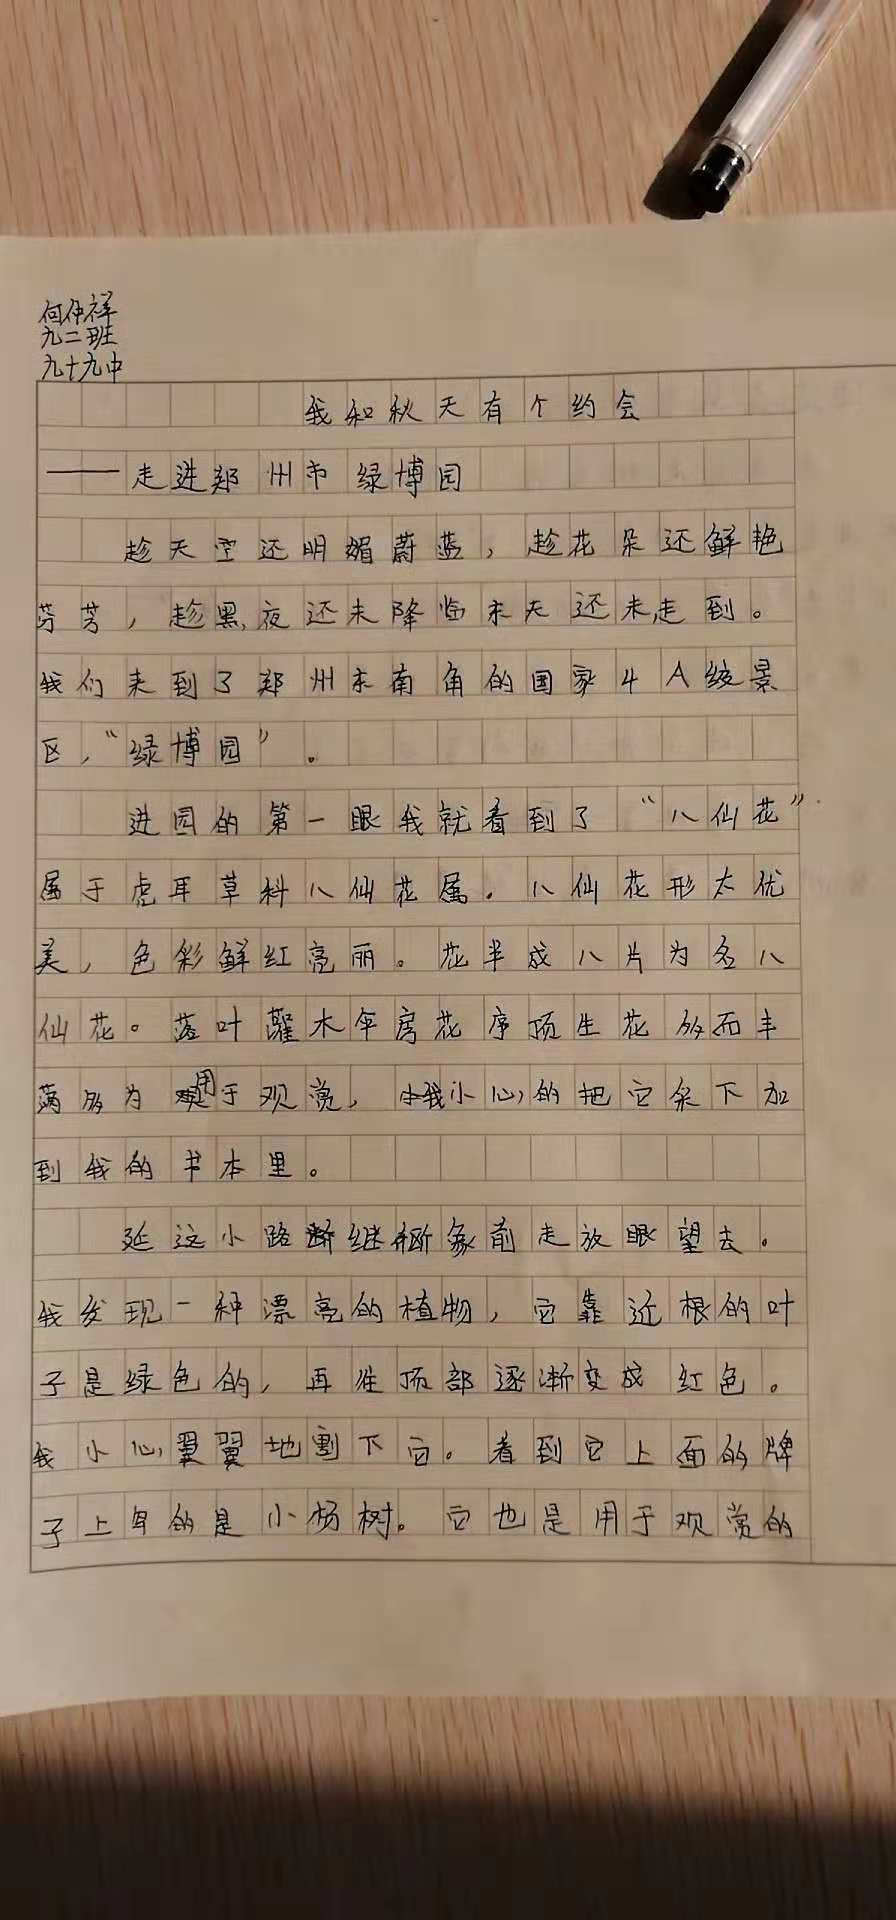 何仲祥
九二班
九十九中
我和秋天有个约会
——走进郑州市绿博园
趁天空还明媚蔚蓝，趁花朵还鲜艳
芬芳，趁黑夜还未降临末天还未走到。
我们来到了郑州东南角的国家4A级景
区，“绿博园”。
进园的第一眼我就看到了“八仙花”
属于虎耳草科八仙花属。八仙花形太优
美，色彩鲜红亮丽。花半成八片为名八
仙花。落叶灌木伞房花序顶生花放而丰
满多为用于观赏，我小心的把它采下加
到我的书本里。
延这小路继续前走放眼望去。
我发现一种漂亮的植物，它靠近根的叶
子是绿色的，再往顶部逐渐变成红色。
我小心翼翼地割下它。看到它上面的牌
子上写的是小杨树。它也是用于观赏的